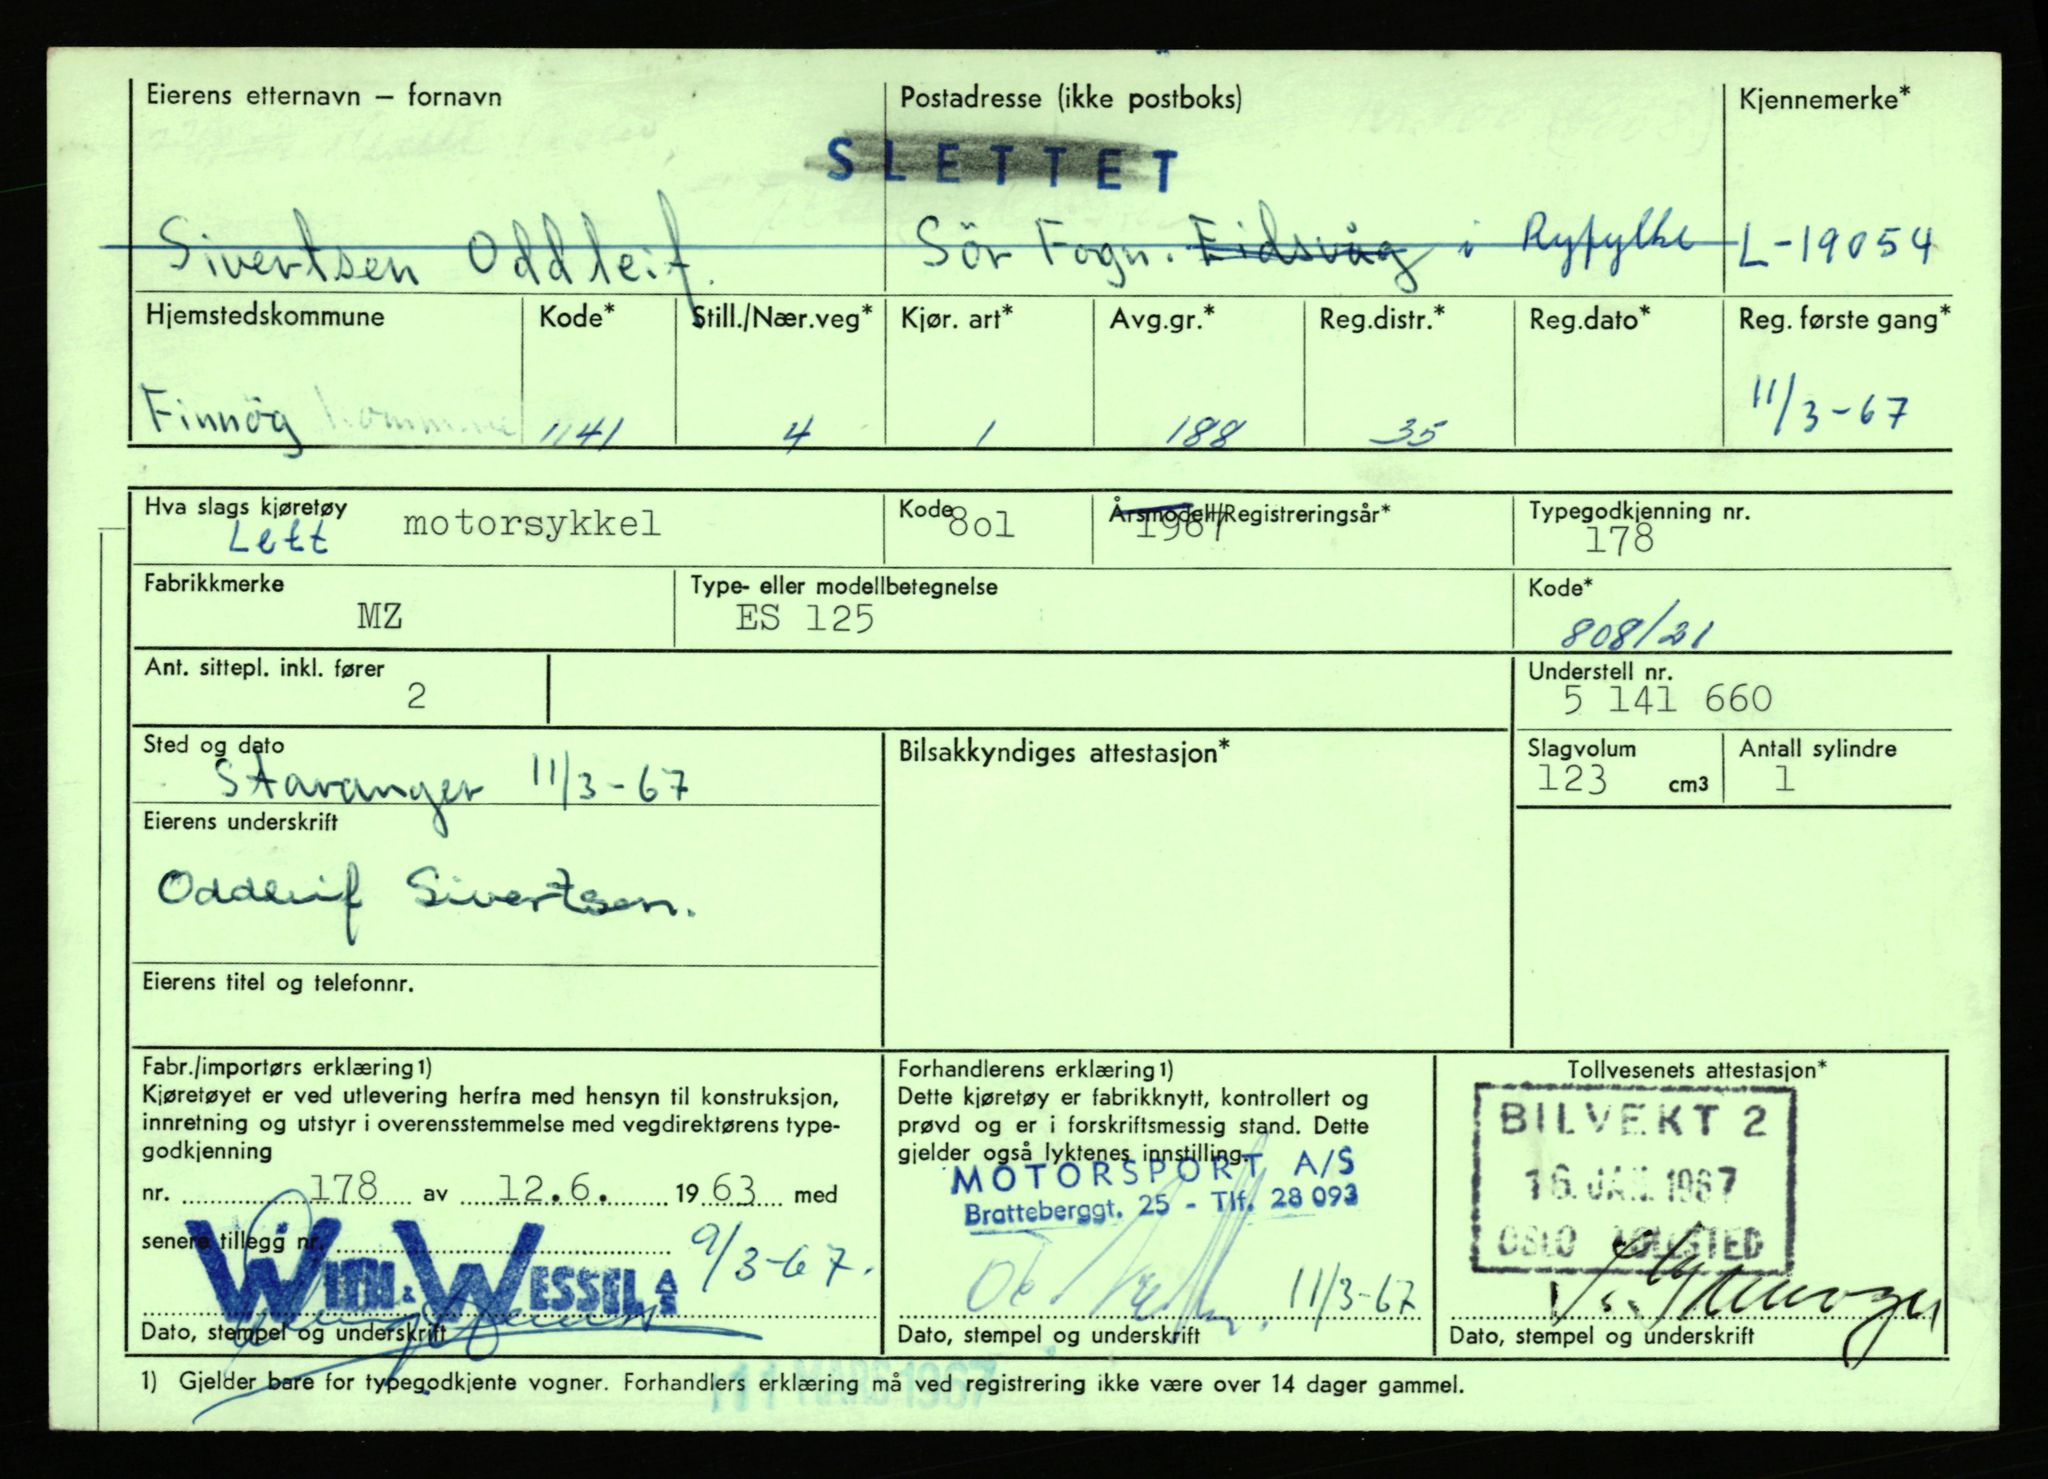 Eierens etternavn – fornavn
Postadresse (ikke postboks)
Kjennemerke*
SLETTET
Sivertsen Oddleif.
Sör Fogn. Eidsvåg i Ryfylke
L-19054
Hjemstedskommune
Kode*
Still./Nær.veg*
Kjør. art*
Avg.gr.*
Reg.distr.*
Reg.dato*
Reg. første gang*
Finnög kommune
1141
4
1
188
35
11/3-67
Hva slags kjøretøy
Lett motorsykkel
Kode
801
Årsmodell/Registreringsår*
1967
Typegodkjenning nr.
178
Fabrikkmerke
MZ
Type- eller modellbetegnelse
ES 125
Kode*
808/21
Ant. sittepl. inkl. fører
2
Understell nr.
5 141 660
Sted og dato
Stavanger 11/3-67
Bilsakkyndiges attestasjon*
Slagvolum
123 cm3
Antall sylindre
1
Eierens underskrift
Oddleif Sivertsen.
Eierens titel og telefonnr.
Fabr./importørs erklæring1)
Kjøretøyet er ved utlevering herfra med hensyn til konstruksjon,
innretning og utstyr i overensstemmelse med vegdirektørens type-
godkjenning
nr. 178 av 12.6. 1963 med
senere tillegg nr.
9/3-67.
WIEH & WESSEL A/S
Dato, stempel og underskrift
Forhandlerens erklæring1)
Dette kjøretøy er fabrikknytt, kontrollert og
prøvd og er i forskriftsmessig stand. Dette
gjelder også lyktenes innstilling.
MOTORSPORT A/S
Bratteberggt. 25 - Tlf. 28 093
11/3-67
Dato, stempel og underskrift
Tollvesenets attestasjon*
BILVEKT 2
16. JAN. 1967
OSLO TOLLSTED
Dato, stempel og underskrift
1) Gjelder bare for typegodkjente vogner. Forhandlers erklæring må ved registrering ikke være over 14 dager gammel.